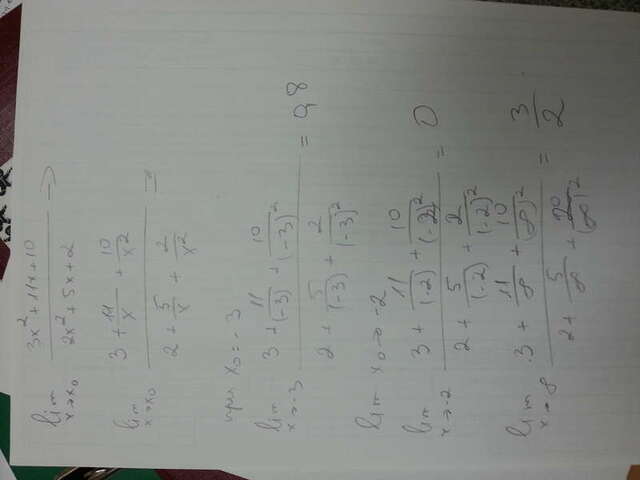 lim x→x₀ (3x² + 11x + 10)/(2x² + 5x + 2) →
lim x→x₀ (3 + 11/x + 10/x²)/(2 + 5/x + 2/x²) =
при x₀ = -3
lim x→-3 (3 + 11/(-3) + 10/(-3)²)/(2 + 5/(-3) + 2/(-3)²) = 0,8
lim x₀→ -2
lim x→-2 (3 + 11/(-2) + 10/(-2)²)/(2 + 5/(-2) + 2/(-2)²) = 0
lim x→∞ (3 + 11/∞ + 10/(∞)²)/(2 + 5/∞ + 20/(∞)²) = 3/2